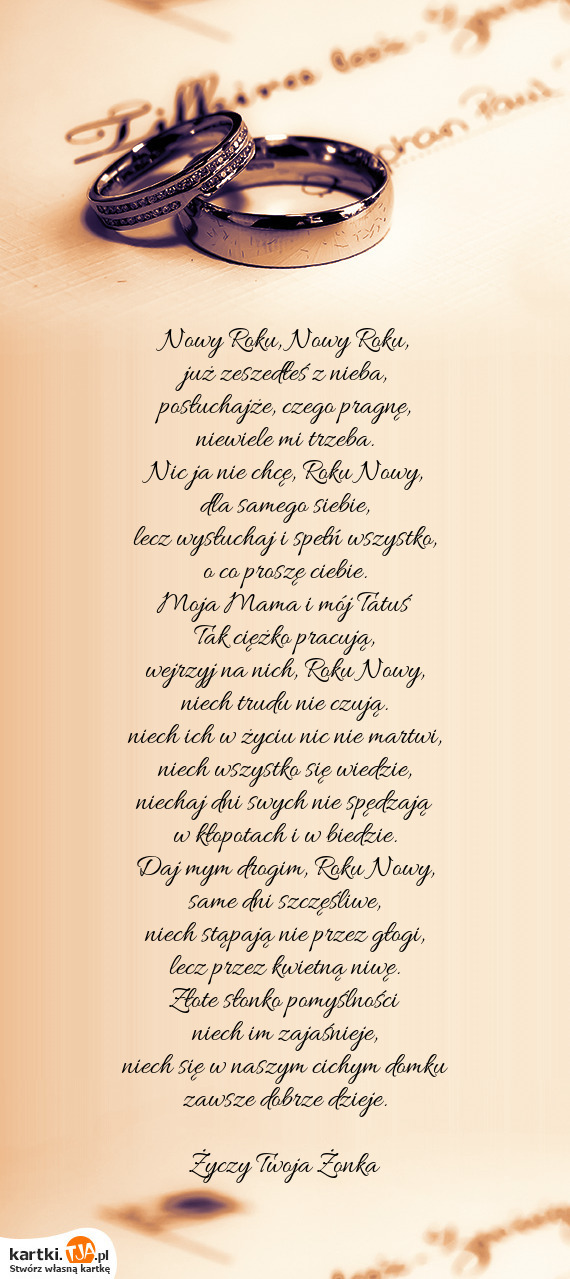 Nowy Roku, Nowy Roku,
już zeszedłeś z nieba,
posłuchajże, czego pragnę,
niewiele mi trzeba.
Nic ja nie chcę, Roku Nowy,
dla samego siebie,
lecz wysłuchaj i spełń wszystko,
o co proszę ciebie.
Moja Mama i mój Tatuś
Tak ciężko pracują,
wejrzyj na nich, Roku Nowy,
niech trudu nie czują.
niech ich w życiu nic nie martwi,
niech wszystko się wiedzie,
niechaj dni swych nie spędzają
w kłopotach i w biedzie.
Daj mym drogim, Roku Nowy,
same dni szczęśliwe,
niech stąpają nie przez głogi,
lecz przez kwietną niwę.
Złote słonko pomyślności
niech im zajaśnieje,
niech się w naszym cichym domku
zawsze dobrze dzieje.
Życzy Twoja Żonka
kartki.TJA.pl
Stwórz własną kartkę